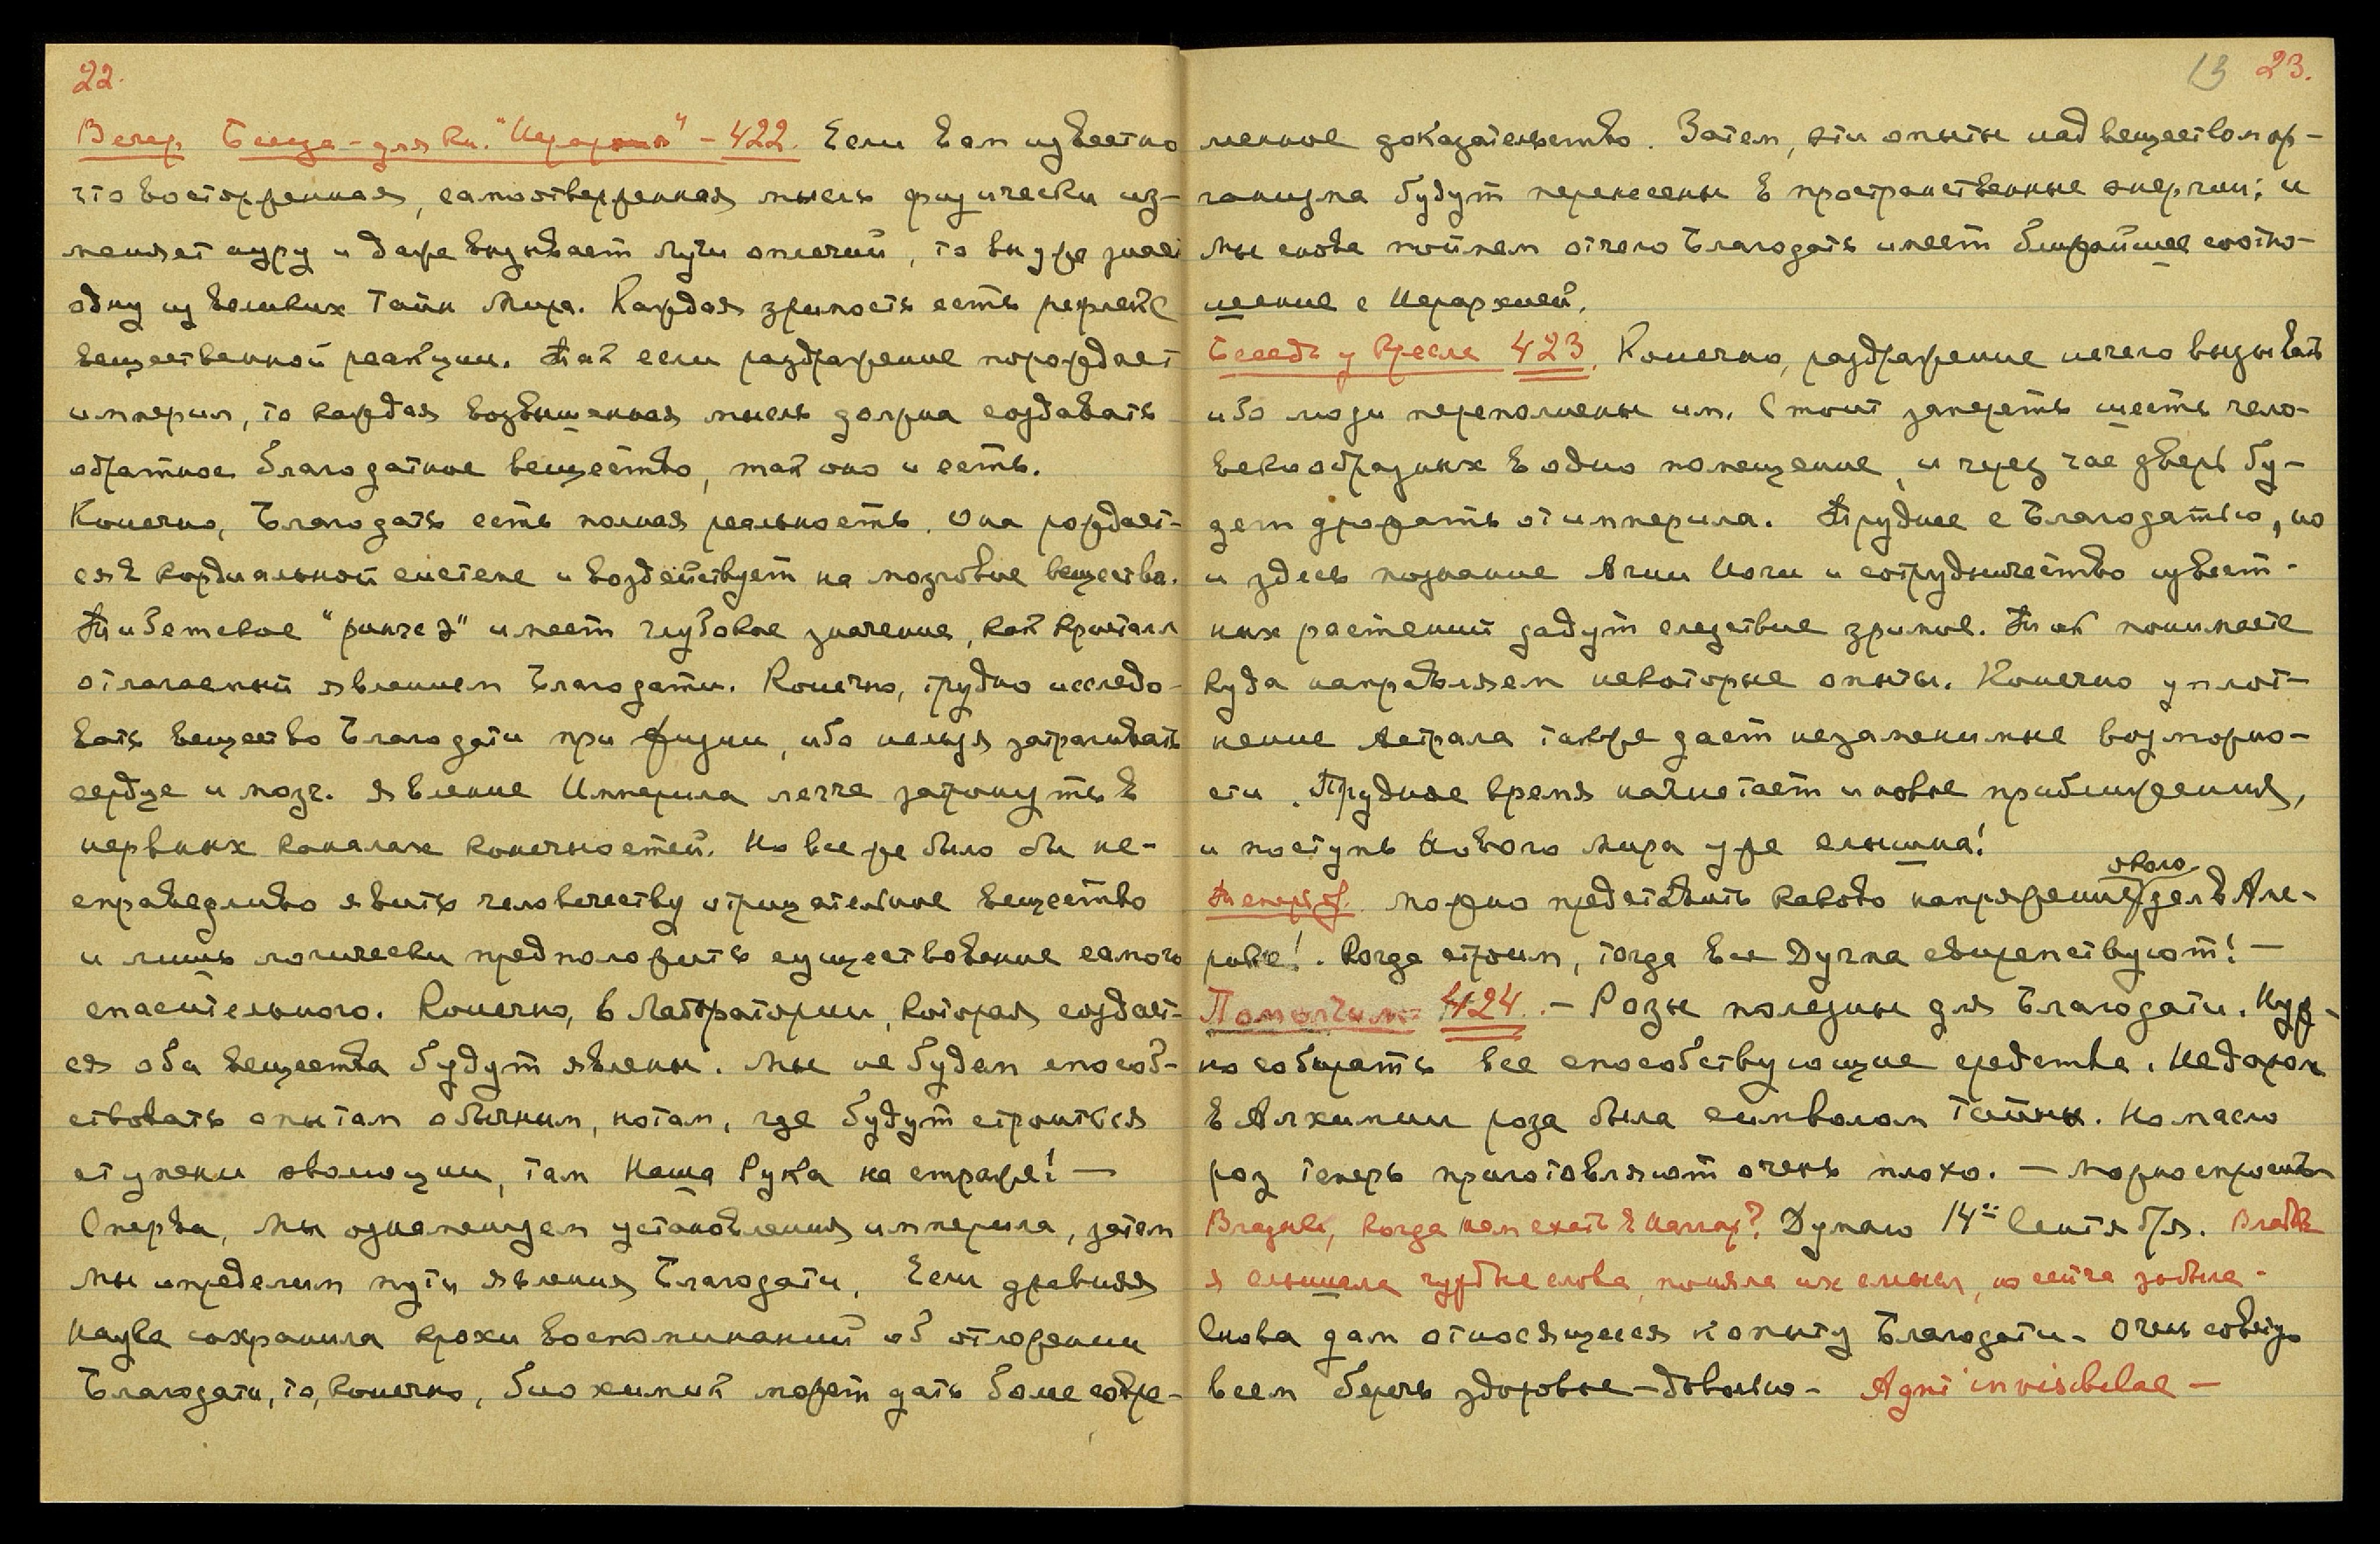 22.
Вечер Беседа – для кн. "Иерархия" – 422. Если вам известно
что восторженная, самоотверженная мысль физически из-
меняет ауру и даже вызывает лучи оплечий, то вы уже знаете
одну из великих Тайн Мира. Каждая зримость есть рефлекс
вещественной реакции. Так если раздражение порождает
империл, то каждая возвышенная мысль должна создавать
обратное благодатное вещество, так оно и есть.
Конечно, Благодать есть полная реальность. Она рождает-
ся в кордиальной системе и воздействует на мозговые вещества.
Тибетское "рингсэ" имеет глубокое значение, как кристалл
отлагаемый явлением Благодати. Конечно, трудно исследо-
вать вещество Благодати при физии, ибо нельзя затрагивать
сердце и мозг. Явление Империла легче затронуть в
нервных каналах конечностей. Но все же было бы не-
справедливо явить человечеству отрицательное вещество
и лишь логически предположить существование самого
спасительного. Конечно, в Лаборатории, которая создает-
ся оба вещества будут явлены. Мы не будем способ-
ствовать опытам обычным, но там, где будут строиться
ступени эволюции, там Наша Рука на страже! —
Сперва, мы ознаменуем установления империла, затем
мы определим пути явления Благодати. Если древняя
наука сохранила крохи воспоминаний об отложении
Благодати, то, конечно, биохимик может дать более совре-
13 23.
менное доказательство. Затем, эти опыты над веществом ор-
ганизма будут перенесены в пространственные энергии; и
мы снова поймем отчего Благодать имеет ближайшее соотно-
шение с Иерархией.
Беседа у Кресла 423. Конечно, раздражение нечего вызывать
ибо люди переполнены им. Стоит запереть шесть чело-
векообразных в одно помещение, и через час дверь бу-
дет дрожать от империла. Труднее с Благодатью, но
и здесь познание Агни Йоги и сотрудничество извест-
ных растений дадут следствие зримое. Так понимаете
куда направляем некоторые опыты. Конечно уплот-
нение Астрала также дает незаменимые возможно-
сти. Трудное время нагнетает и новые приближения,
и поступь Нового Мира уже слышна!
около
Теперь о др. Можно представить каково напряжение дел в Аме-
рике! Когда строим, тогда все Дугпа свирепствуют! —
Помолчим 424. – Розы полезны для Благодати. Нуж-
но собирать все способствующие средства. Недаром
в Алхимии роза была символом тайны. Но масло
роз теперь приготовляют очень плохо. — Можно спросить
Владыка, когда нам ехать в Наггар? Думаю 14ое Сентября. Владыка
я слышала чудные слова, поняла их смысл, но сейчас забыла –
Снова дам относящееся к опыту Благодати – Очень советую
всем беречь здоровье – довольно – Agni invisibilae —